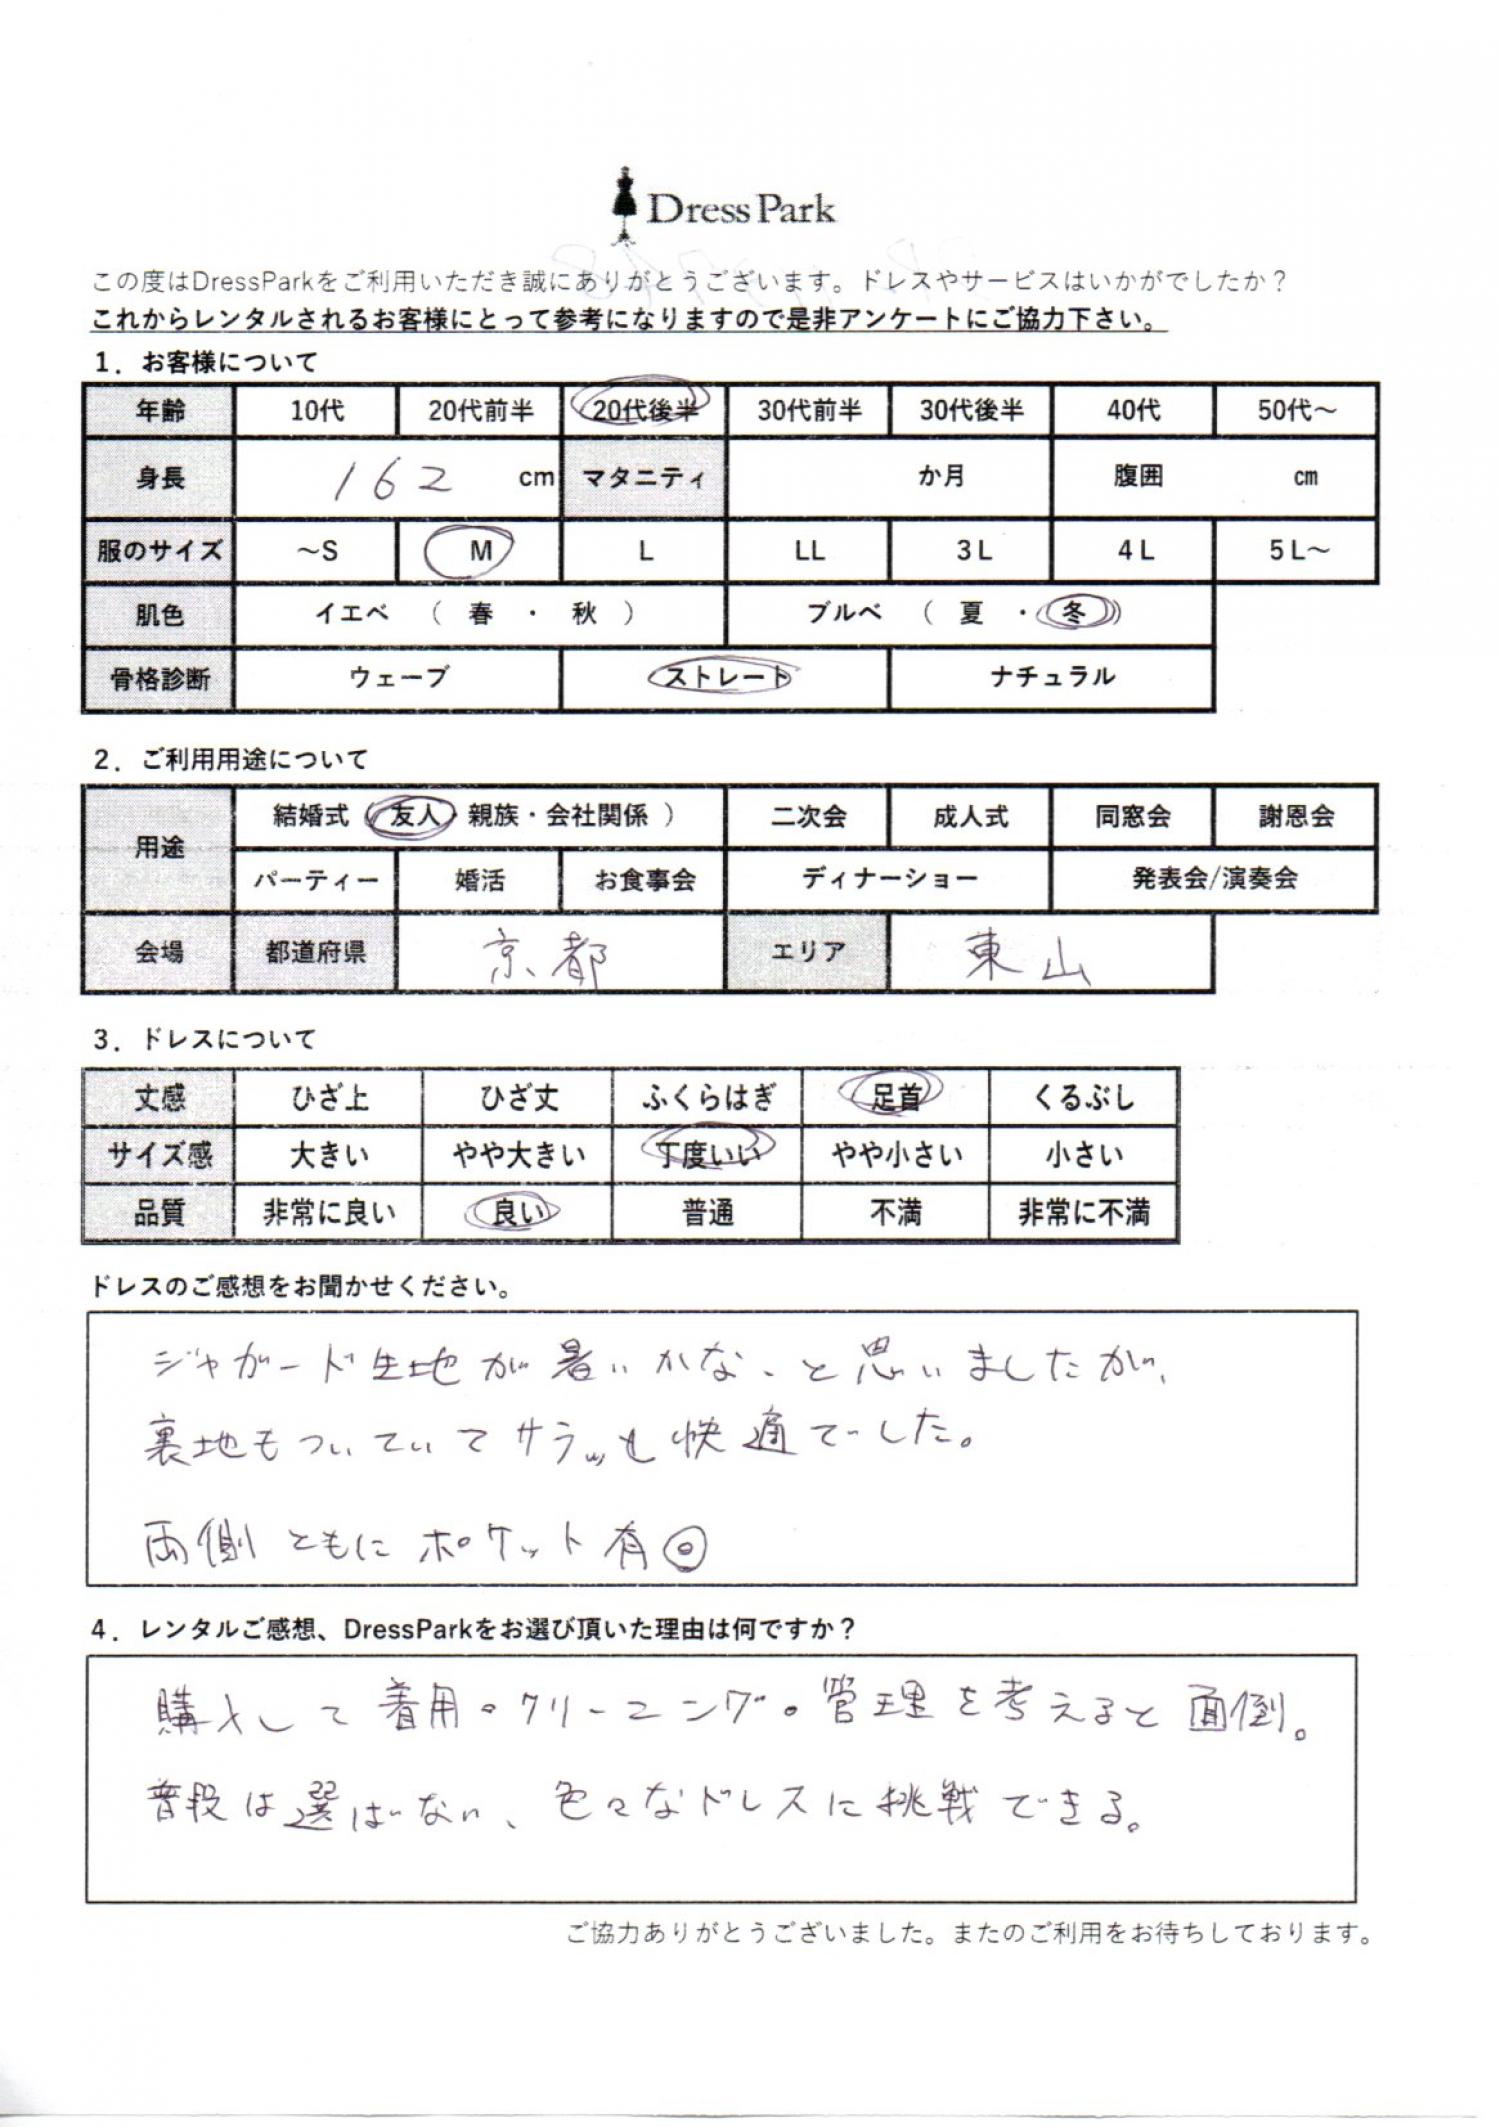 Dress Park
この度はDressParkをご利用いただき誠にありがとうございます。ドレスやサービスはいかがでしたか？
これからレンタルされるお客様にとって参考になりますので是非アンケートにご協力下さい。
1．お客様について
年齢 10代 20代前半 20代後半 30代前半 30代後半 40代 50代～
身長 162 cm マタニティ か月 腹囲 cm
服のサイズ ～S M L LL 3L 4L 5L～
肌色 イエベ （ 春 ・ 秋 ） ブルベ （ 夏 ・ 冬 ）
骨格診断 ウェーブ ストレート ナチュラル
2．ご利用用途について
用途 結婚式（ 友人・親族・会社関係 ） 二次会 成人式 同窓会 謝恩会
パーティー 婚活 お食事会 ディナーショー 発表会/演奏会
会場 都道府県 京都 エリア 東山
3．ドレスについて
丈感 ひざ上 ひざ丈 ふくらはぎ 足首 くるぶし
サイズ感 大きい やや大きい 丁度いい やや小さい 小さい
品質 非常に良い 良い 普通 不満 非常に不満
ドレスのご感想をお聞かせください。
ジャガード生地が暑いかな、と思いましたが、
裏地もついていてサラッと快適でした。
両側ともにポケット有◎
4．レンタルご感想、DressParkをお選び頂いた理由は何ですか？
購入して着用・クリーニング・管理を考えると面倒。
普段は選ばない、色々なドレスに挑戦できる。
ご協力ありがとうございました。またのご利用をお待ちしております。